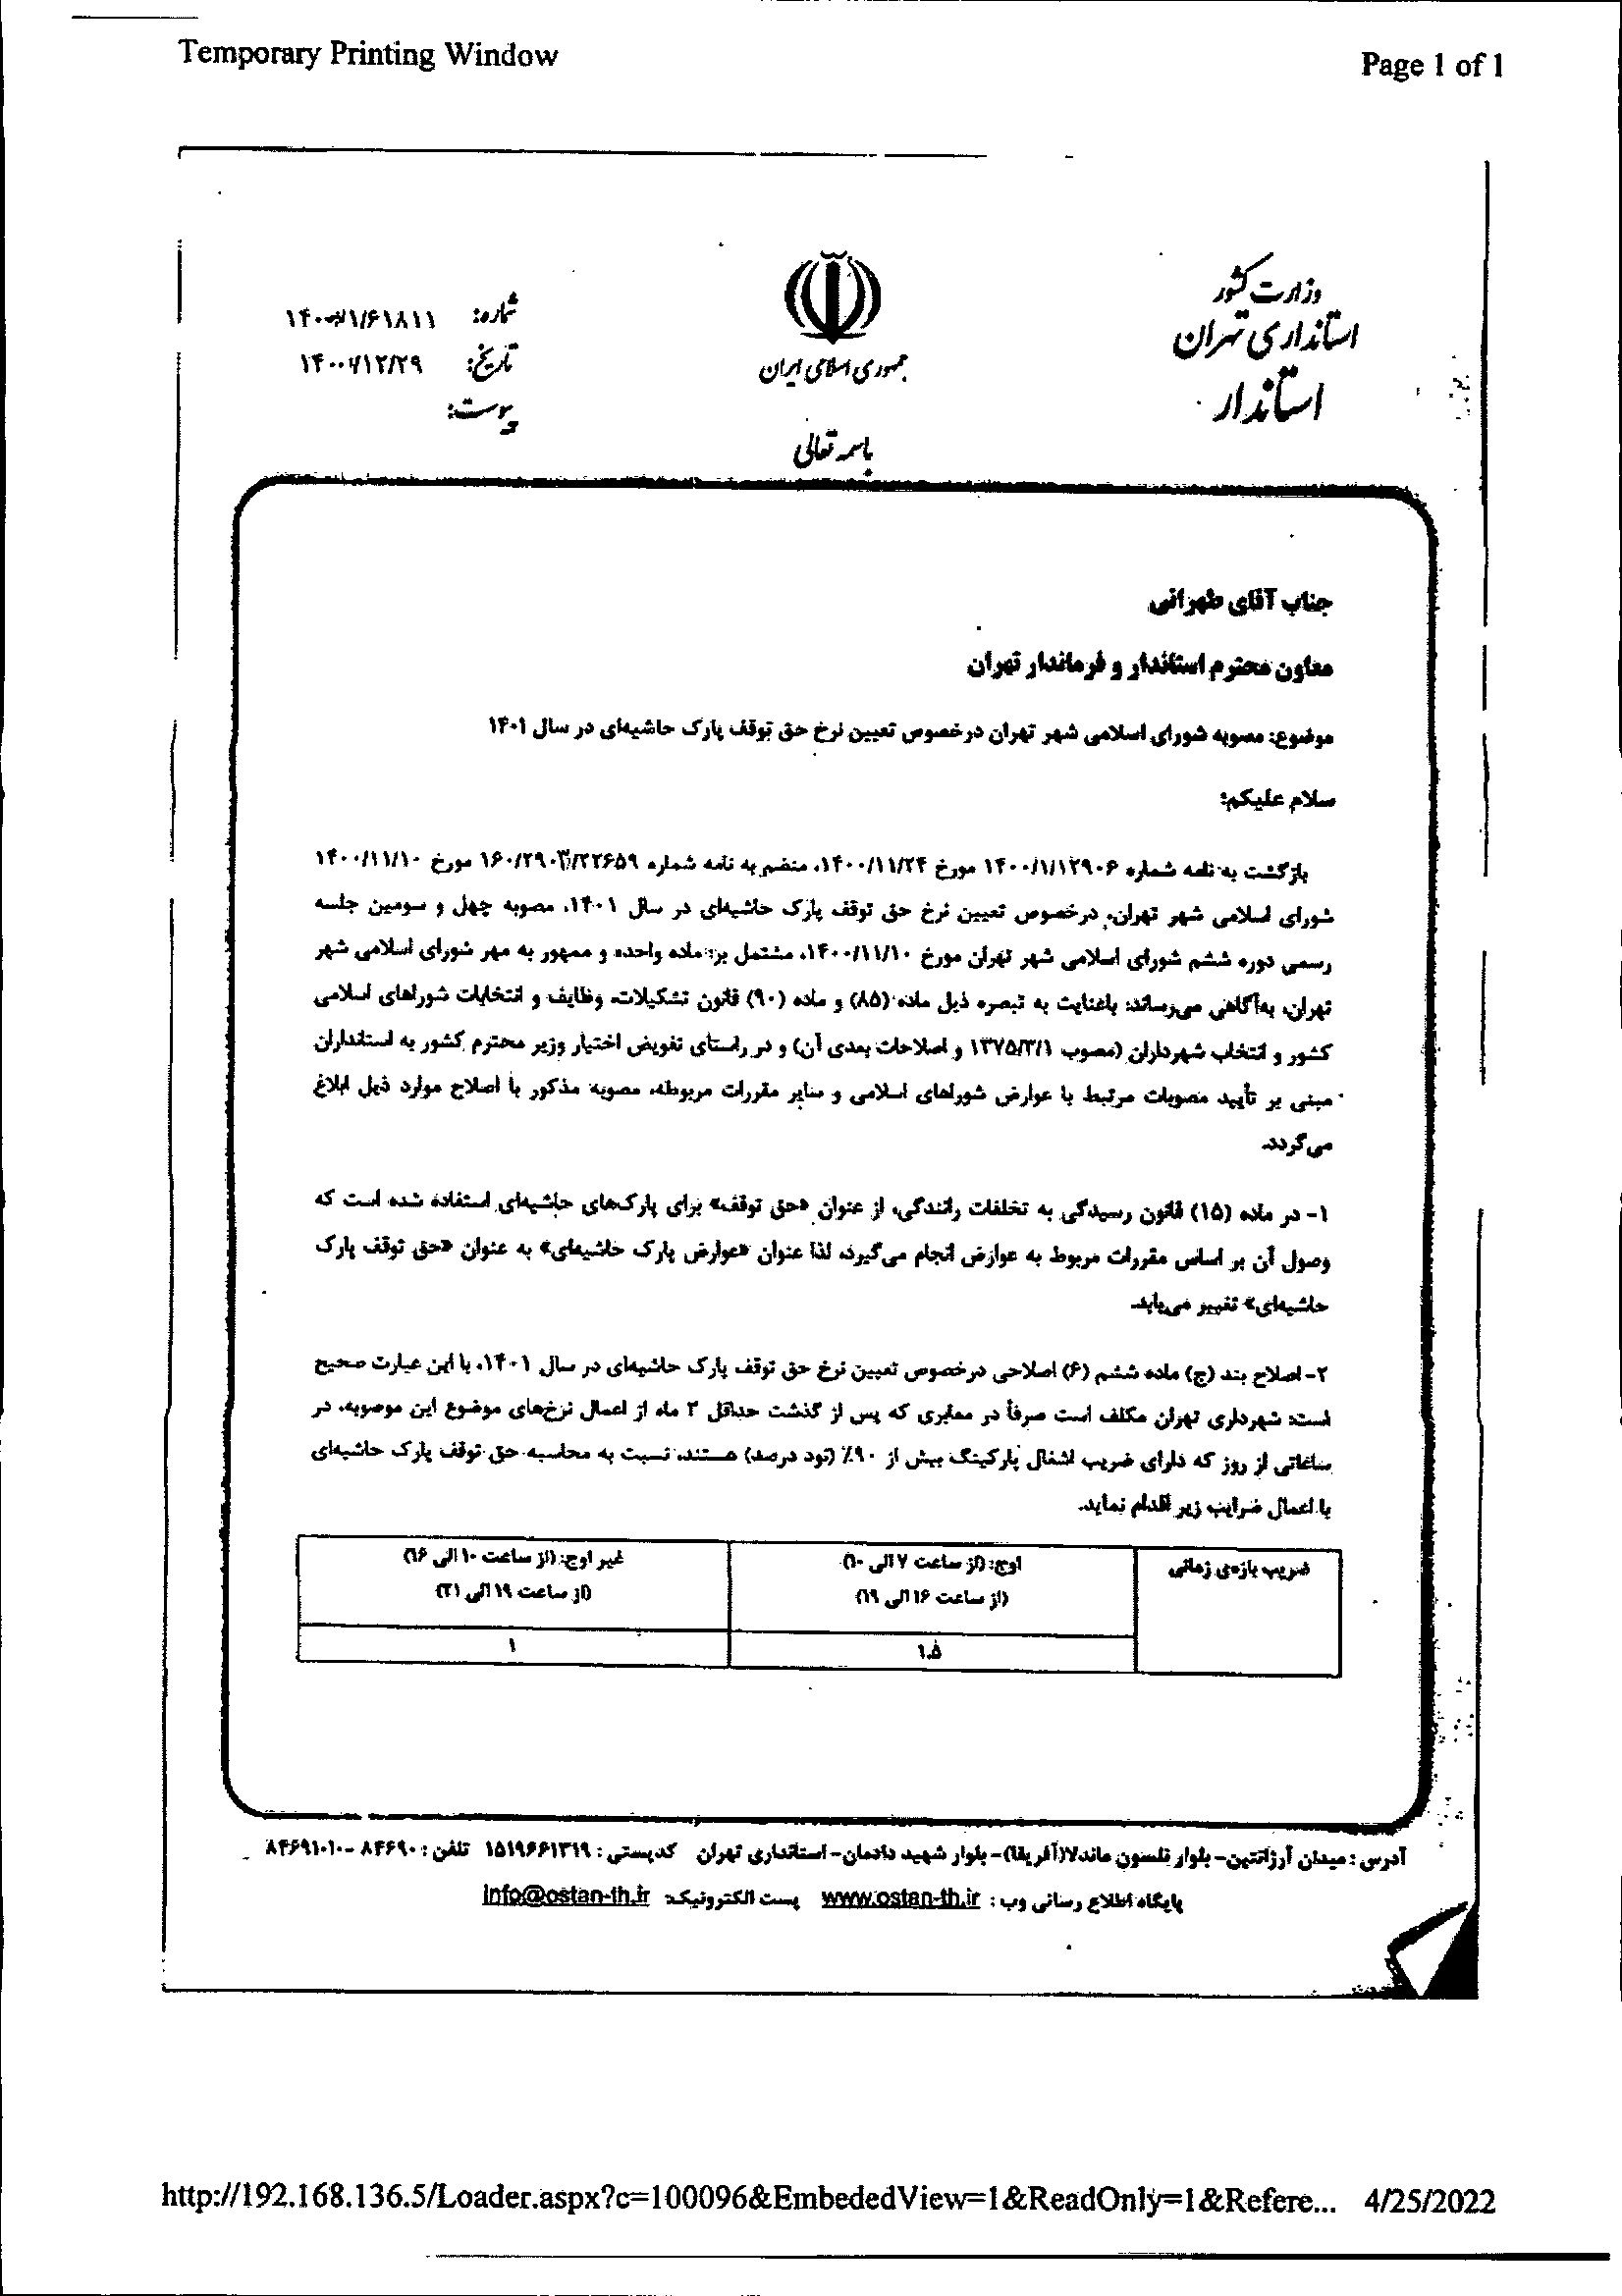 Temporary Printing Window
Page 1 of 1
وزارت کشور
استانداری تهران
استاندار
جمهوری اسلامی ایران
باسمه تعالی
شماره:
تاریخ: ۱۴۰۰/۱۲/۲۹
پیوست:
جناب آقای طهرانی
معاون محترم استاندار و فرماندار تهران
موضوع: مصوبه شورای اسلامی شهر تهران درخصوص تعیین نرخ حق توقف پارک حاشیه‌ای در سال ۱۴۰۱
سلام علیکم؛
بازگشت به نامه شماره ۱۴۰۰/۱/۱۲۹۰۶ مورخ ۱۴۰۰/۱۱/۲۴، منضم به نامه شماره ۱۶۰/۲۹۰۳/۲۲۶۵۹ مورخ ۱۴۰۰/۱۱/۱۰
شورای اسلامی شهر تهران، درخصوص تعیین نرخ حق توقف پارک حاشیه‌ای در سال ۱۴۰۱، مصوبه چهل و سومین جلسه
رسمی دوره ششم شورای اسلامی شهر تهران مورخ ۱۴۰۰/۱۱/۱۰، مشتمل بر: ماده واحده و ممهور به مهر شورای اسلامی شهر
تهران، به‌آگاهی می‌رساند: باعنایت به تبصره ذیل ماده (۸۵) و ماده (۹۰) قانون تشکیلات، وظایف و انتخابات شوراهای اسلامی
کشور و انتخاب شهرداران (مصوب ۱۳۷۵/۳/۱ و اصلاحات بعدی آن) و در راستای تفویض اختیار وزیر محترم کشور به استانداران
مبنی بر تأیید مصوبات مرتبط با عوارض شوراهای اسلامی و سایر مقررات مربوطه، مصوبه مذکور با اصلاح موارد ذیل ابلاغ
می‌گردد.
۱- در ماده (۱۵) قانون رسیدگی به تخلفات رانندگی، از عنوان «حق توقف» برای پارک‌های حاشیه‌ای استفاده شده است که
وصول آن بر اساس مقررات مربوط به عوارض انجام می‌گیرد، لذا عنوان «عوارض پارک حاشیه‌ای» به عنوان «حق توقف پارک
حاشیه‌ای» تغییر می‌یابد.
۲- اصلاح بند (ج) ماده ششم (۶) اصلاحی درخصوص تعیین نرخ حق توقف پارک حاشیه‌ای در سال ۱۴۰۱، با این عبارت صحیح
است: شهرداری تهران مکلف است صرفاً در معابری که پس از گذشت حداقل ۲ ماه از اعمال نرخ‌های موضوع این موصوبه، در
ساعاتی از روز که دارای ضریب اشغال پارکینگ بیش از ۹۰٪ (نود درصد) هستند، نسبت به محاسبه حق توقف پارک حاشیه‌ای
با اعمال ضرایب زیر اقدام نماید.
ضریب بازه‌ی زمانی
اوج: (از ساعت ۷ الی ۱۰)
(از ساعت ۱۶ الی ۱۹)
غیر اوج: (از ساعت ۱۰ الی ۱۶)
(از ساعت ۱۹ الی ۲۱)
۱.۵
۱
آدرس : میدان آرژانتین- بلوار نلسون ماندلا(آفریقا)- بلوار شهید دادمان- استانداری تهران کدپستی : ۱۵۱۹۶۶۱۳۱۹ تلفن : ۸۴۶۹۰ -۸۴۶۹۱۰۱۰
پایگاه اطلاع رسانی وب : www.ostan-th.ir پست الکترونیک: info@ostan-th.ir
http://192.168.136.5/Loader.aspx?c=100096&EmbededView=1&ReadOnly=1&Refere... 4/25/2022